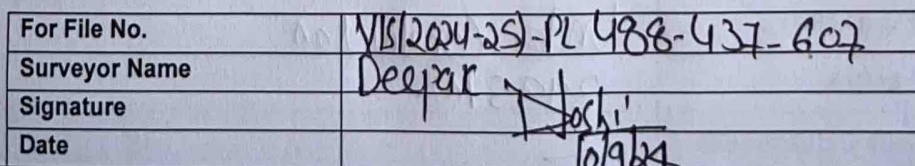 For File No. VIS(2024-25)-PL 488-437-607
Surveyor Name Deepak Joshi
Signature
Date 10/9/24